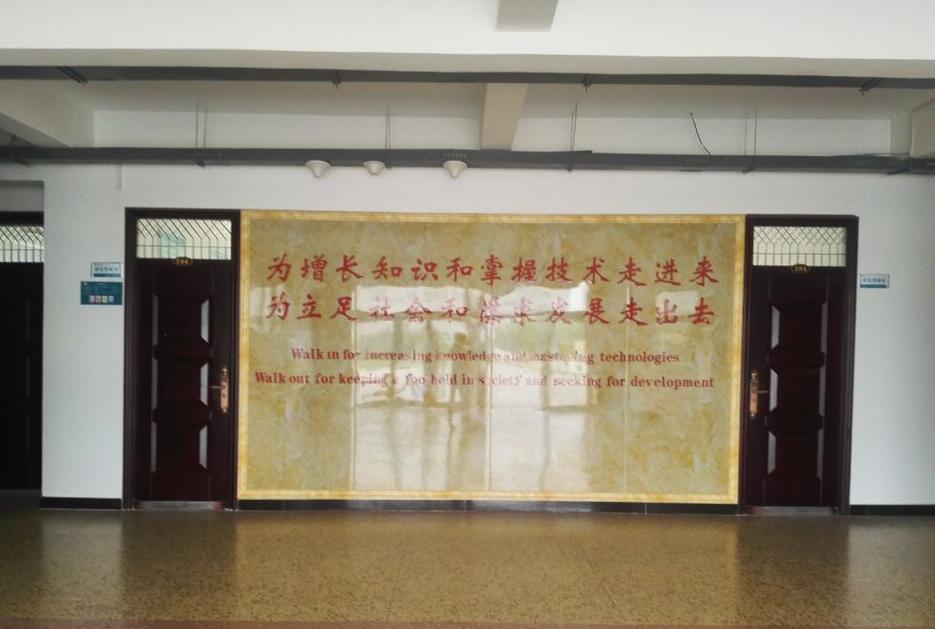 为增长知识和掌握技术走进来
为立足社会和谋求发展走出去
Walk in for increasing knowledge and mastering technologies
Walk out for keeping a foo hold in society and seeking for development
104
104